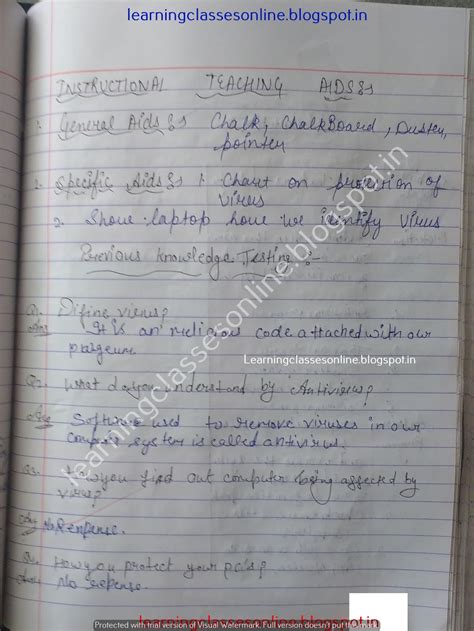 learningclassesonline.blogspot.in
INSTRUCTIONAL TEACHING AIDS:
1. General Aids: Chalk, ChalkBoard, Duster,
pointer
2. Specific Aids: 1 Chart on provision of
virus
2. Shove laptop hove we identify virus
Previous knowledge Testing :-
Q1. Difine virus?
Ans It is an melicious code attached with our
Learningclassesonline.blogspot.in
Q2. What do you understand by Antivirus?
Ans Software used to remove viruses in our
system is called antivirus.
Q3. How you find out computer being affected by
virus?
Ans No Response.
Q4. How you protect your pc's?
Ans No response.
learningclassesonline.blogspot.in
Protected with trial version of Visual Watermark. Full version doesn't put this mark.
learningclassesonline.blogspot.in